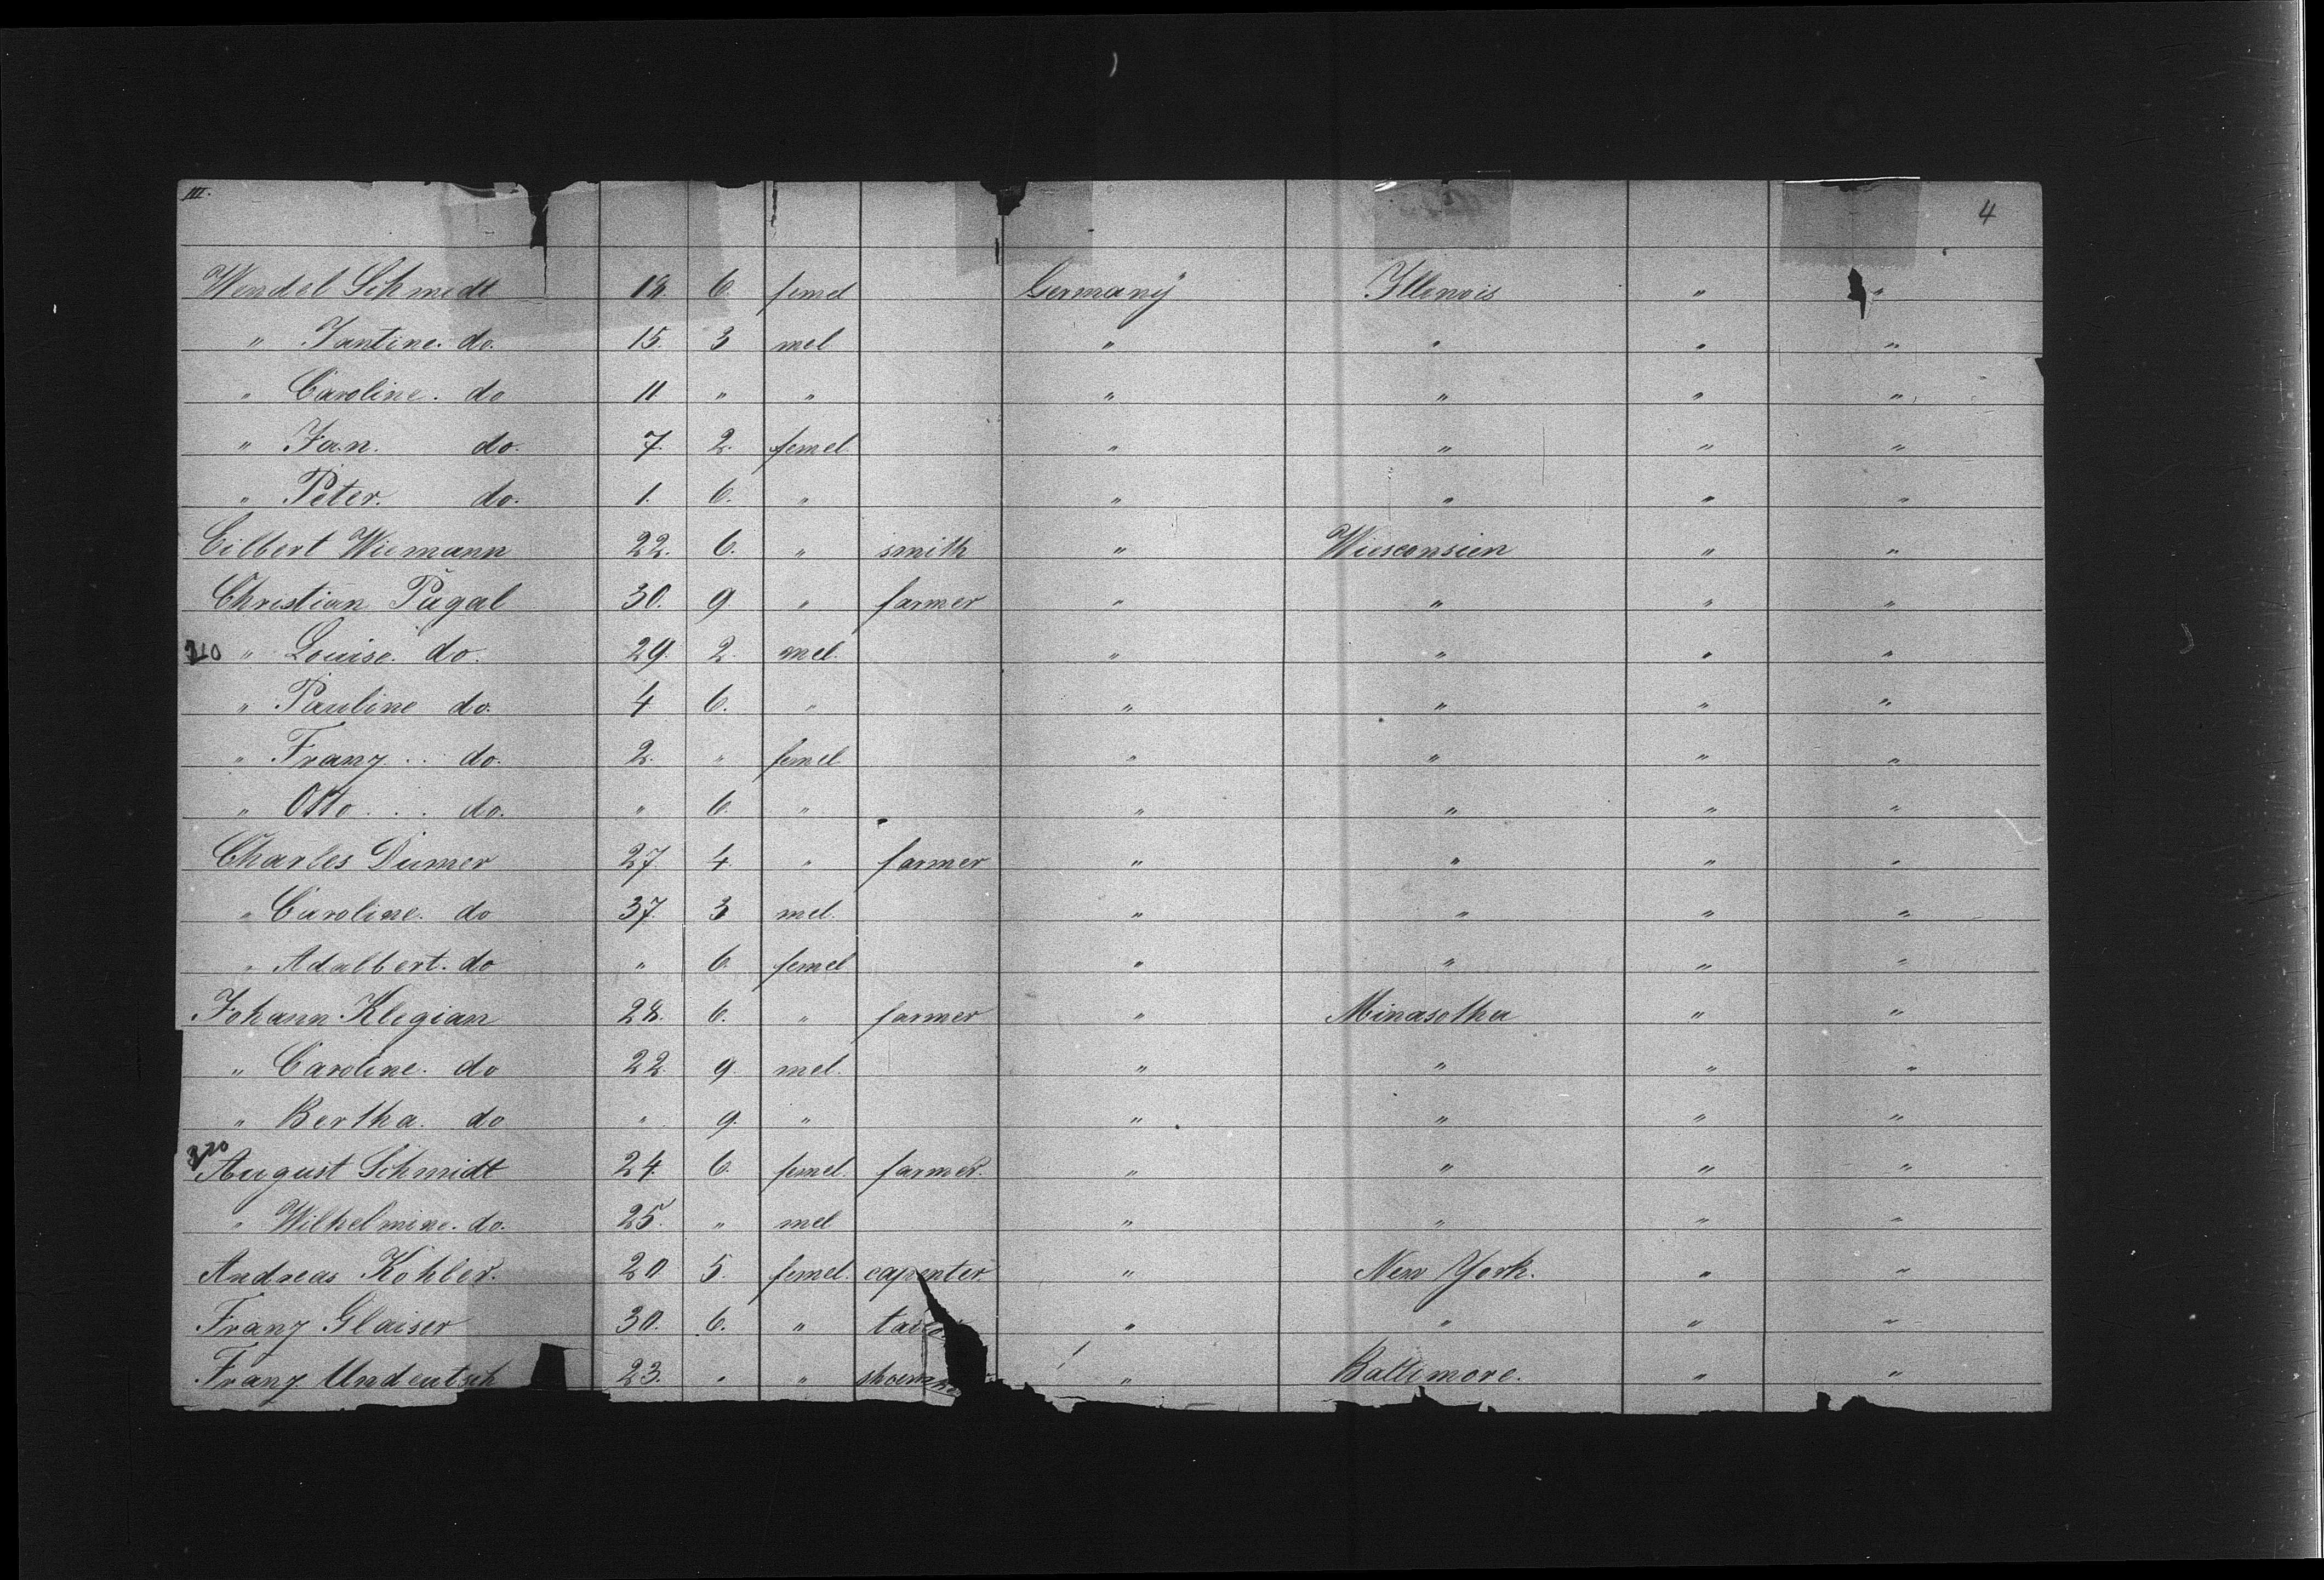 III. 4
Wendel Schmidt 18. 6. femel Germany Illinois " "
" Jantine. do. 15. 3 mel " " " "
" Caroline. do 11 " " " " " "
" Jan. do. 7. 2. femel " " " "
" Peter. do. 1. 6. " " " " "
Eilbert Wiemann 22. 6. " smith " Wiesconsien " "
Christian Pagal 30. 9 " farmer " " " "
210 " Louise. do. 29. 2. mel. " " " "
" Pauline do. 4 6. " " " " "
" Franz .. do. 2. " femel " " " "
" Otto ... do. " 6. " " " " "
Charles Dumer 27. 4. " farmer " " " "
" Caroline. do 37. 3 mel. " " " "
" Adalbert. do " 6. femel " " " "
Johann Klegian 28. 6. " farmer " Minasotha " "
" Caroline. do 22. 9. mel. " " " "
" Bertha. do " 9. " " " " "
320
August Schmidt 24 6. femel. farmer. " " " "
" Wilhelmine. do. 25. " mel " " " "
Andreas Kohler. 20 5. femel. capenter. " New York. " "
Franz Glaiser 30. 6. " " " " "
Franz Undeutsch 23. " " " Baltimore. " "